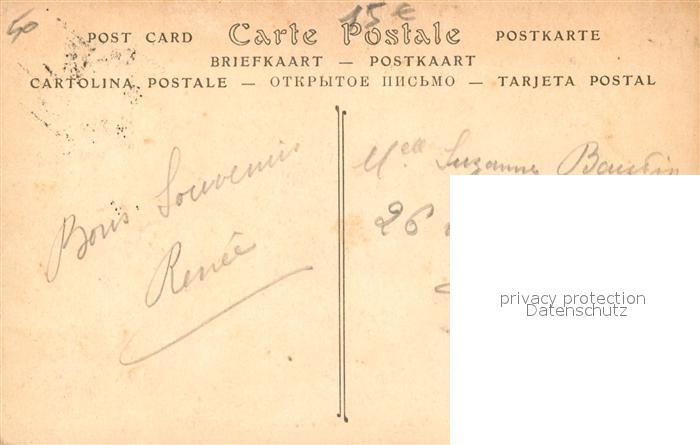 50
15 €
POST CARD Carte Postale POSTKARTE
BRIEFKAART — POSTKAART
CARTOLINA POSTALE — ОТКРЫТОЕ ПИСЬМО — TARJETA POSTAL
Bons Souvenirs
Renée
Melle Suzanne
26
privacy protection
Datenschutz